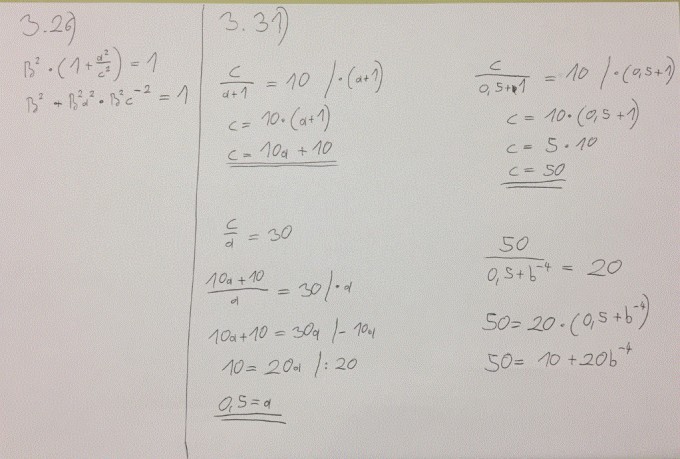 3.26)
B² · (1 + a²/c²) = 1
B² + B²a² · B²c⁻² = 1
3.31)
c/(a+1) = 10 / ·(a+1)
c = 10·(a+1)
c = 10a + 10
c/a = 30
(10a + 10)/a = 30 / ·a
10a + 10 = 30a / - 10a
10 = 20a / : 20
0,5 = a
c/(0,5+1) = 10 / ·(0,5+1)
c = 10·(0,5+1)
c = 5 · 10
c = 50
50/(0,5 + b⁻⁴) = 20
50 = 20 · (0,5 + b⁻⁴)
50 = 10 + 20b⁻⁴